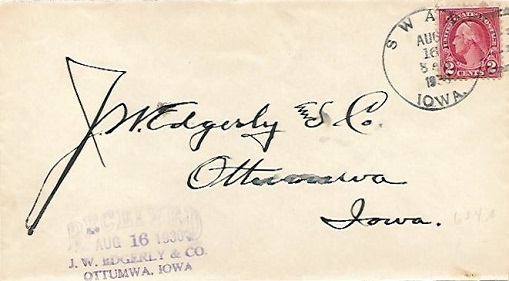 SWAN
AUG
16
8 A
1930
IOWA.
UNITED STATES POSTAGE
2 CENTS 2
J. W. Edgerly & Co.
Ottumwa
Iowa.
RECEIVED
AUG 16 1930
J. W. EDGERLY & CO.
OTTUMWA, IOWA